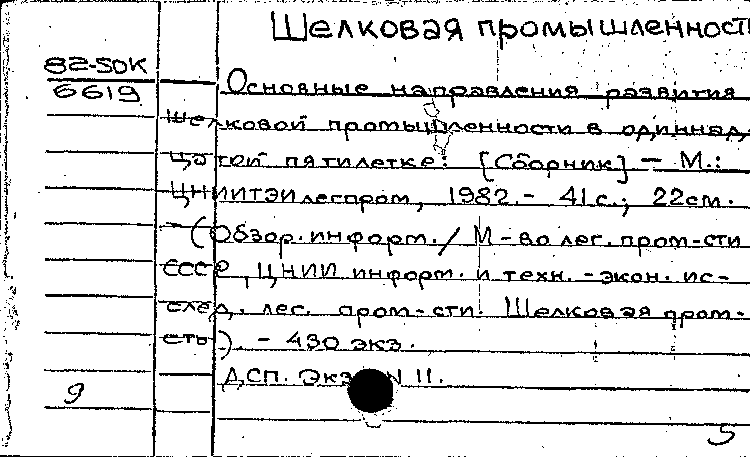 Шелковая промышленность
82-5ДК
6619
Основные направления развития
шелковой промышленности в одиннад,
цатой пятилетке: [Сборник] - М.:
ЦНИИТЭИлегпром, 1982. - 41 с.; 22см.
- (Обзор. информ. / М-во лег. пром-сти
СССР, ЦНИИ информ. и техн. - экон. ис-
след. лег. пром-сти. Шелковая пром-
сть). - 430 экз.
ДСП. Экз. N 11.
9
5